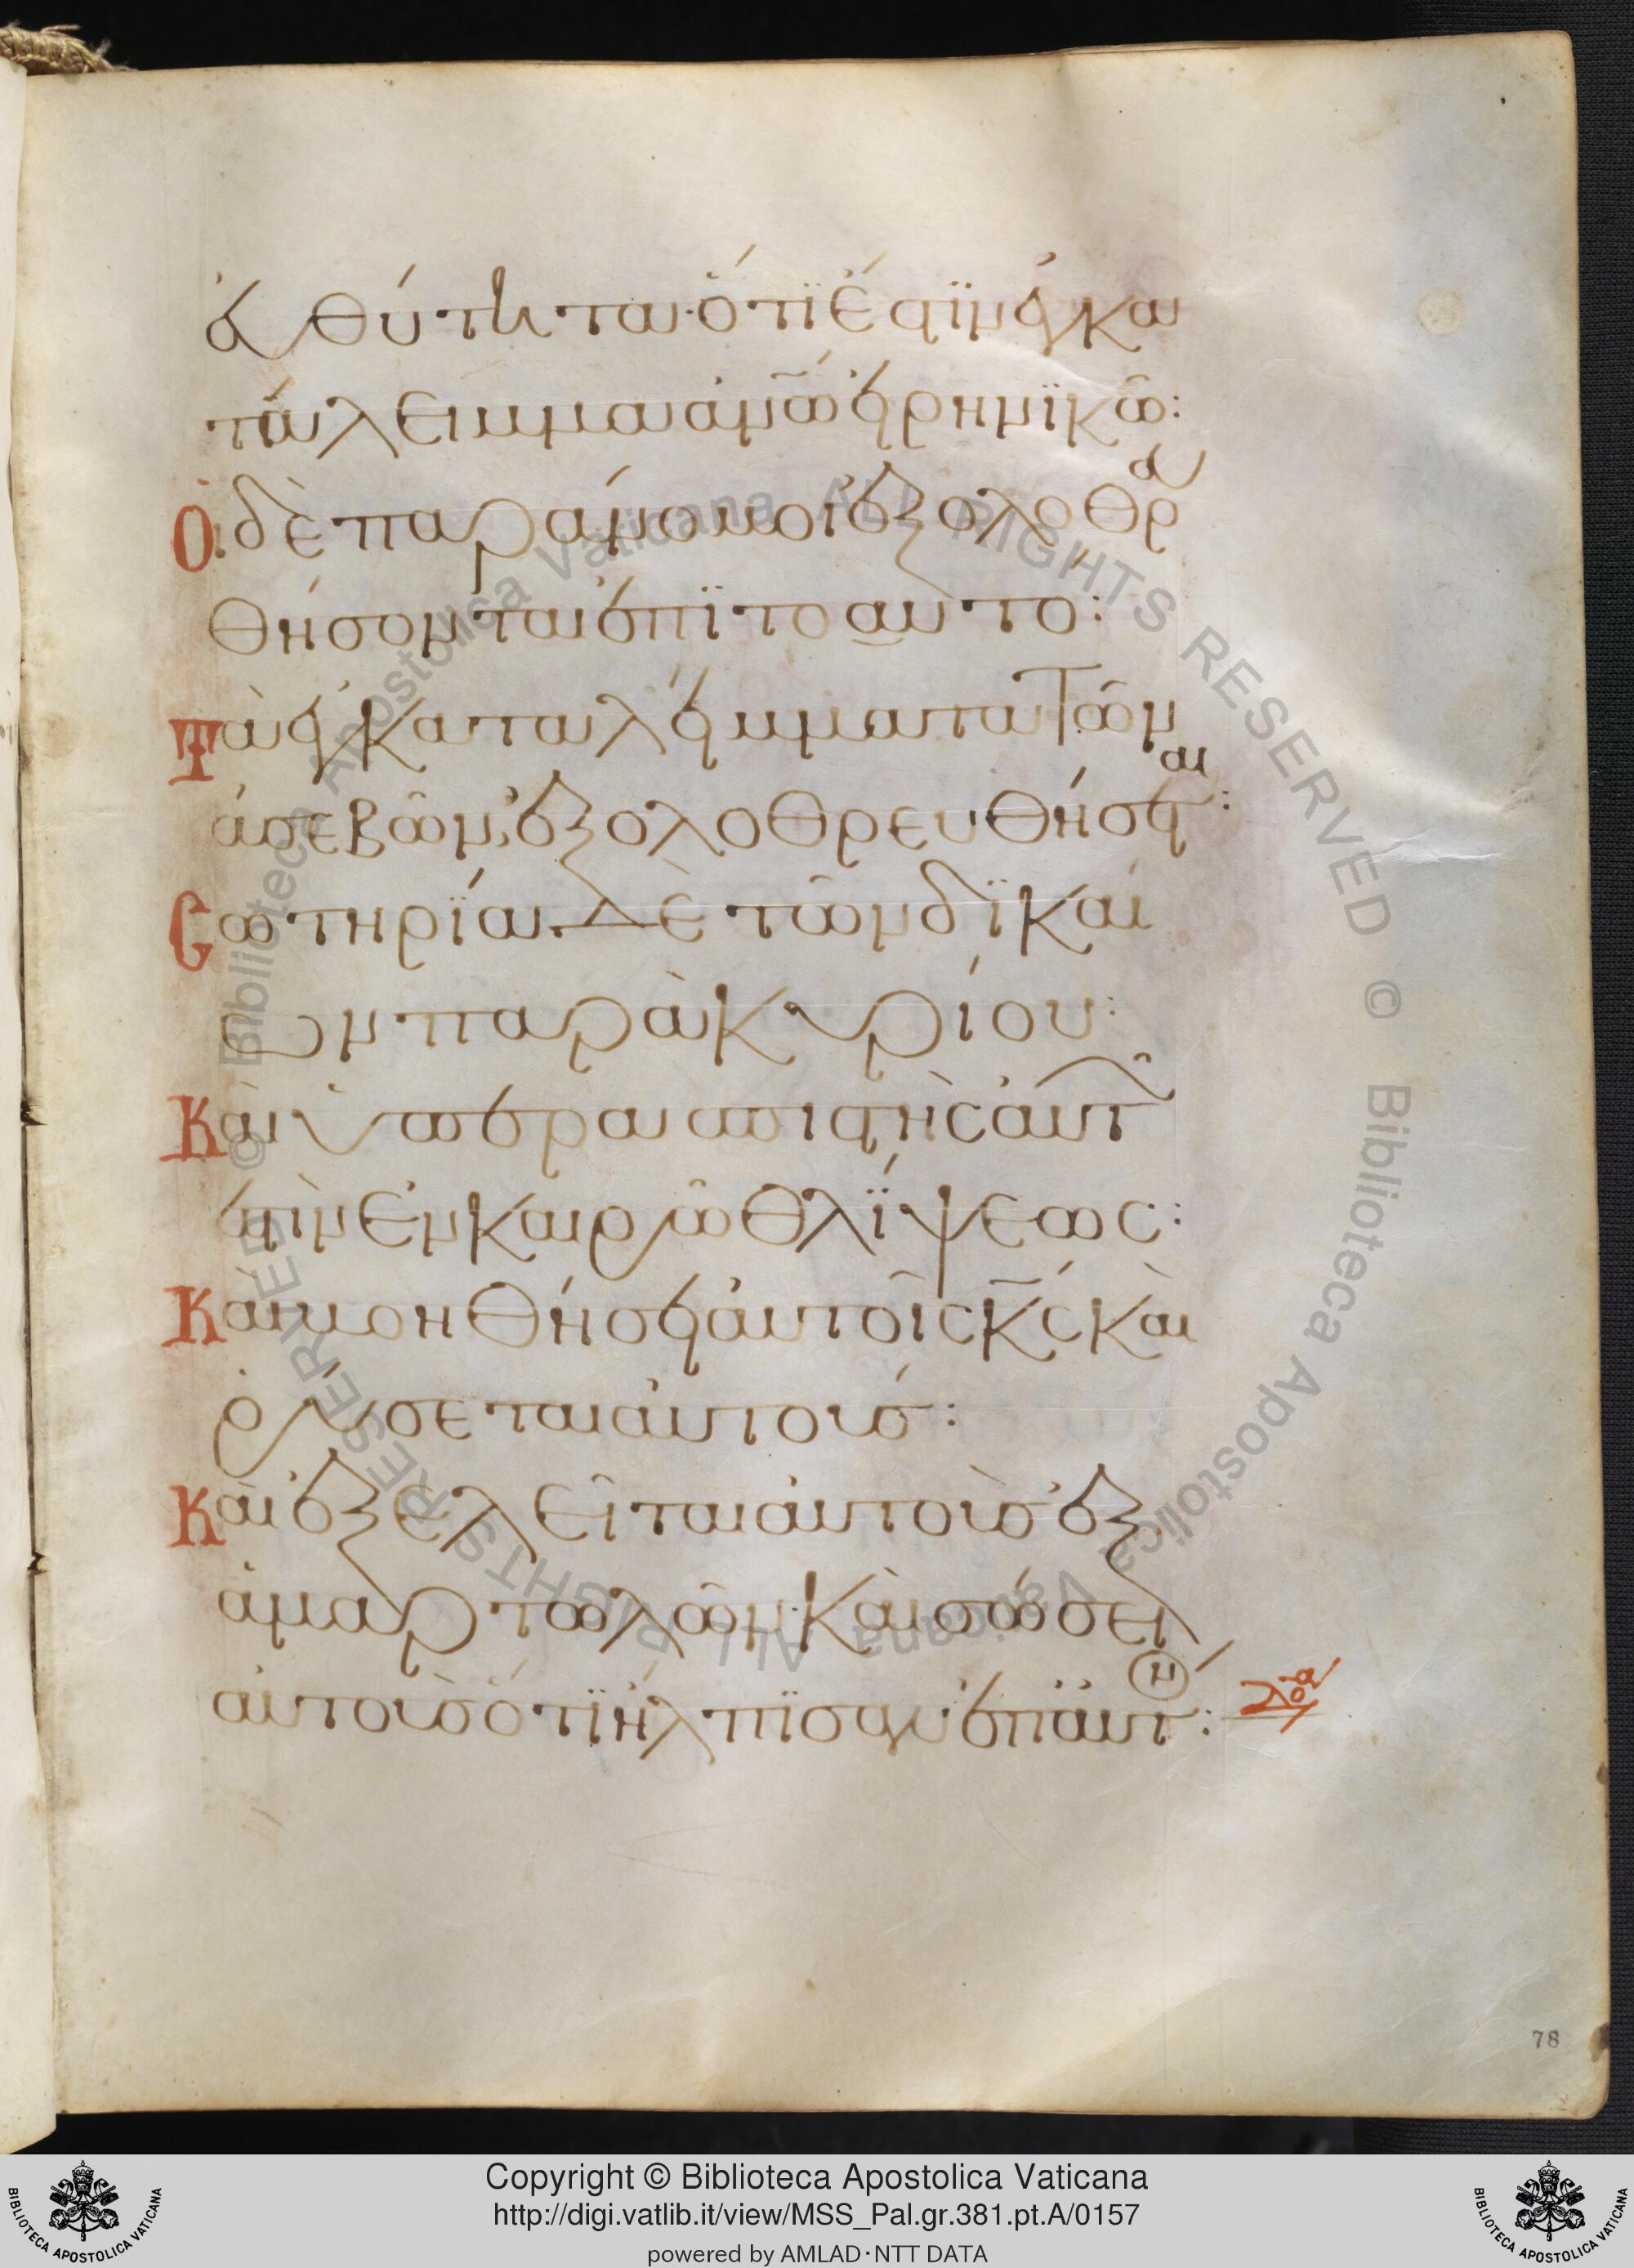 εὐθύτητα· ὅτι ἔστιν ἐγκα
τάλειμμα ἀν͂ω εἰρηνικῶ:
Οἱ δὲ παράνομοι ἐξολοθρευ
θήσονται ἐπὶ το αυτό:
Τὰ ἐγκαταλείμματα τῶν
ἀσεβῶν, ἐξολοθρευθήσεται:
Σωτηρία δὲ τῶν δικαί
ων παρὰ κυρίου:
Και ὑπερασπιστὴς ἀυτῶν
ἐστιν ἐν καιρῶ θλίψεως:
Και βοηθήσει ἀυτοῖς κ͂ς καὶ
ῥύσεται ἀυτούς:
Καὶ ἐξελεῖται ἀυτοὺς ἐξ
ἁμαρτωλῶν· καὶ σώσει
αὐτοὺς ὅτι ἤλπισαν ἐπ' ἀυτόν:
Copyright © Biblioteca Apostolica Vaticana
http://digi.vatlib.it/view/MSS_Pal.gr.381.pt.A/0157
powered by AMLAD·NTT DATA
78
BIBLIOTECA APOSTOLICA VATICANA
BIBLIOTECA APOSTOLICA VATICANA
© Biblioteca Apostolica Vaticana ALL RIGHTS RESERVED
© Biblioteca Apostolica Vaticana ALL RIGHTS RESERVED